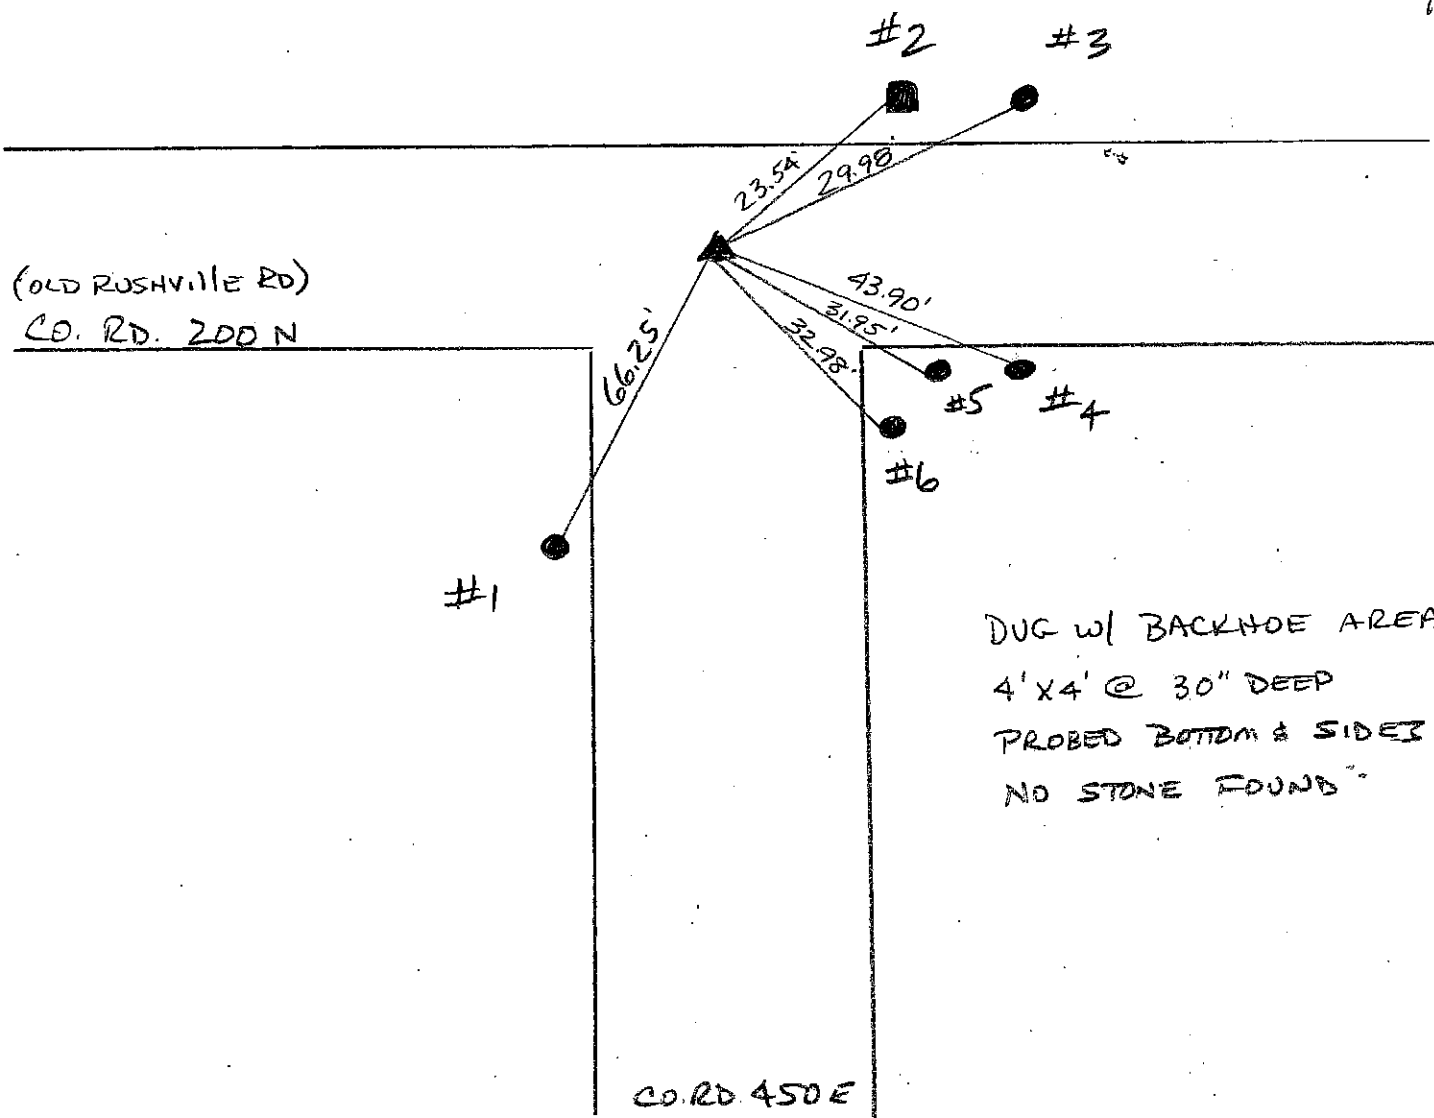 #2
#3
23.54'
29.98'
(OLD RUSHVIllE RD)
CO. RD. 200 N
66.25'
43.90'
31.95'
32.98'
#5
#4
#6
#1
DUG W/ BACKHOE AREA
4' X 4' @ 30" DEEP
PROBED BOTTOM & SIDES
NO STONE FOUND
CO. RD. 450 E